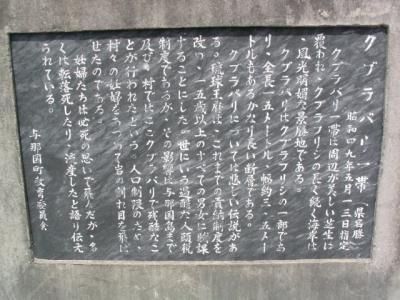 クブラバリ一帯 （県名勝）
昭和四九年五月一三日指定
クブラバリ一帯は周辺が美しい芝生に
覆われ、クブラフリシの長く続く海岸は
風光病媚な景勝地である。
クブラバリはクブラフリシの一部であ
り、全長一五メートル、幅約三・五メー
トルもあるかなり長い断層である。
クブラバリについては悲しい伝説があ
る。琉球王府は、これまでの貢納制度を
改め、一五歳以上のすべての男女に賦課
することにした。世にいう過酷な人頭税
制度であるが、その影響は与那国島まで
及び、村ではここクブラバリで残酷なこ
とが行われたという。人口制限のため、
村々の妊婦をあつめて岩の割れ目を飛ば
せたのである。
妊婦たちは必死の思いで飛んだが、多
くは転落死したり、流産したと語り伝え
られている。
与那国町教育委員会